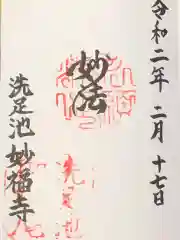 令和二年二月十七日
妙法
洗足池妙福寺